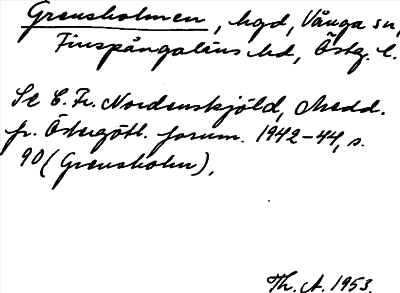 Grensholmen, hgd, Vånga sn,
Finspångaläns hd, Östg. l.
Se C. Fr. Nordenskjöld, Medd.
fr. Östergötl. fornm. 1942-44, s.
90 (Grensholm).
Th. A. 1953.